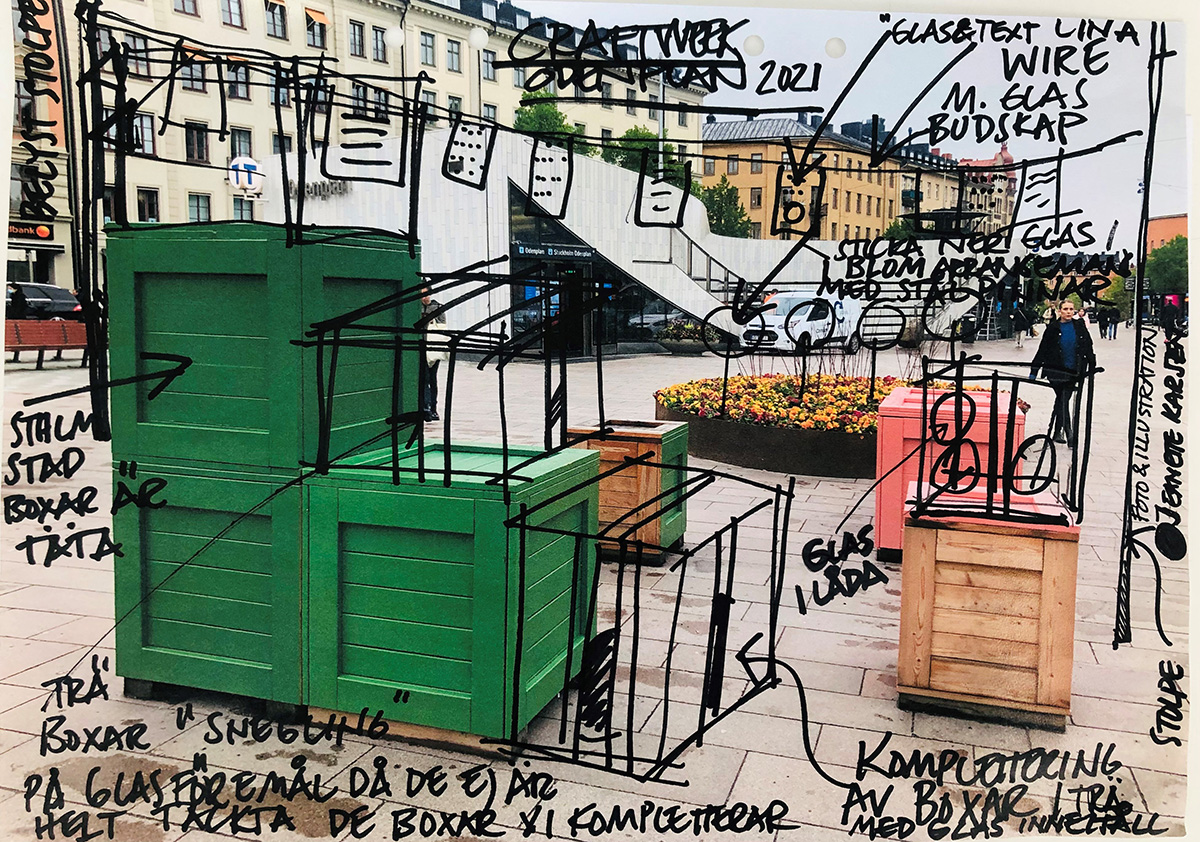 CRAFTWEEK
ODENPLAN 2021
"GLAS&TEXT LINA
WIRE
M. GLAS
BUDSKAP
BELYST STOLPE
T
Odenplan
dbank
Odenplan
Stockholm Odenplan
STICKA NER GLAS I
BLOMARRANGEMAN
MED STADPINNAR
STHLM
STAD
BOXAR ÄR
TÄTA
GLAS
I LÅDA
FOTO & ILLUSTRATION
@JENNCIE KARSEN
STOLPE
TRÄ
BOXAR "SNEGLING"
PÅ GLASFÖREMÅL DÅ DE EJ ÄR
HELT TÄCKTA DE BOXAR VI KOMPLETTERAR
KOMPLETTERING
AV BOXAR I TRÄ
MED GLAS INNEHÅLL